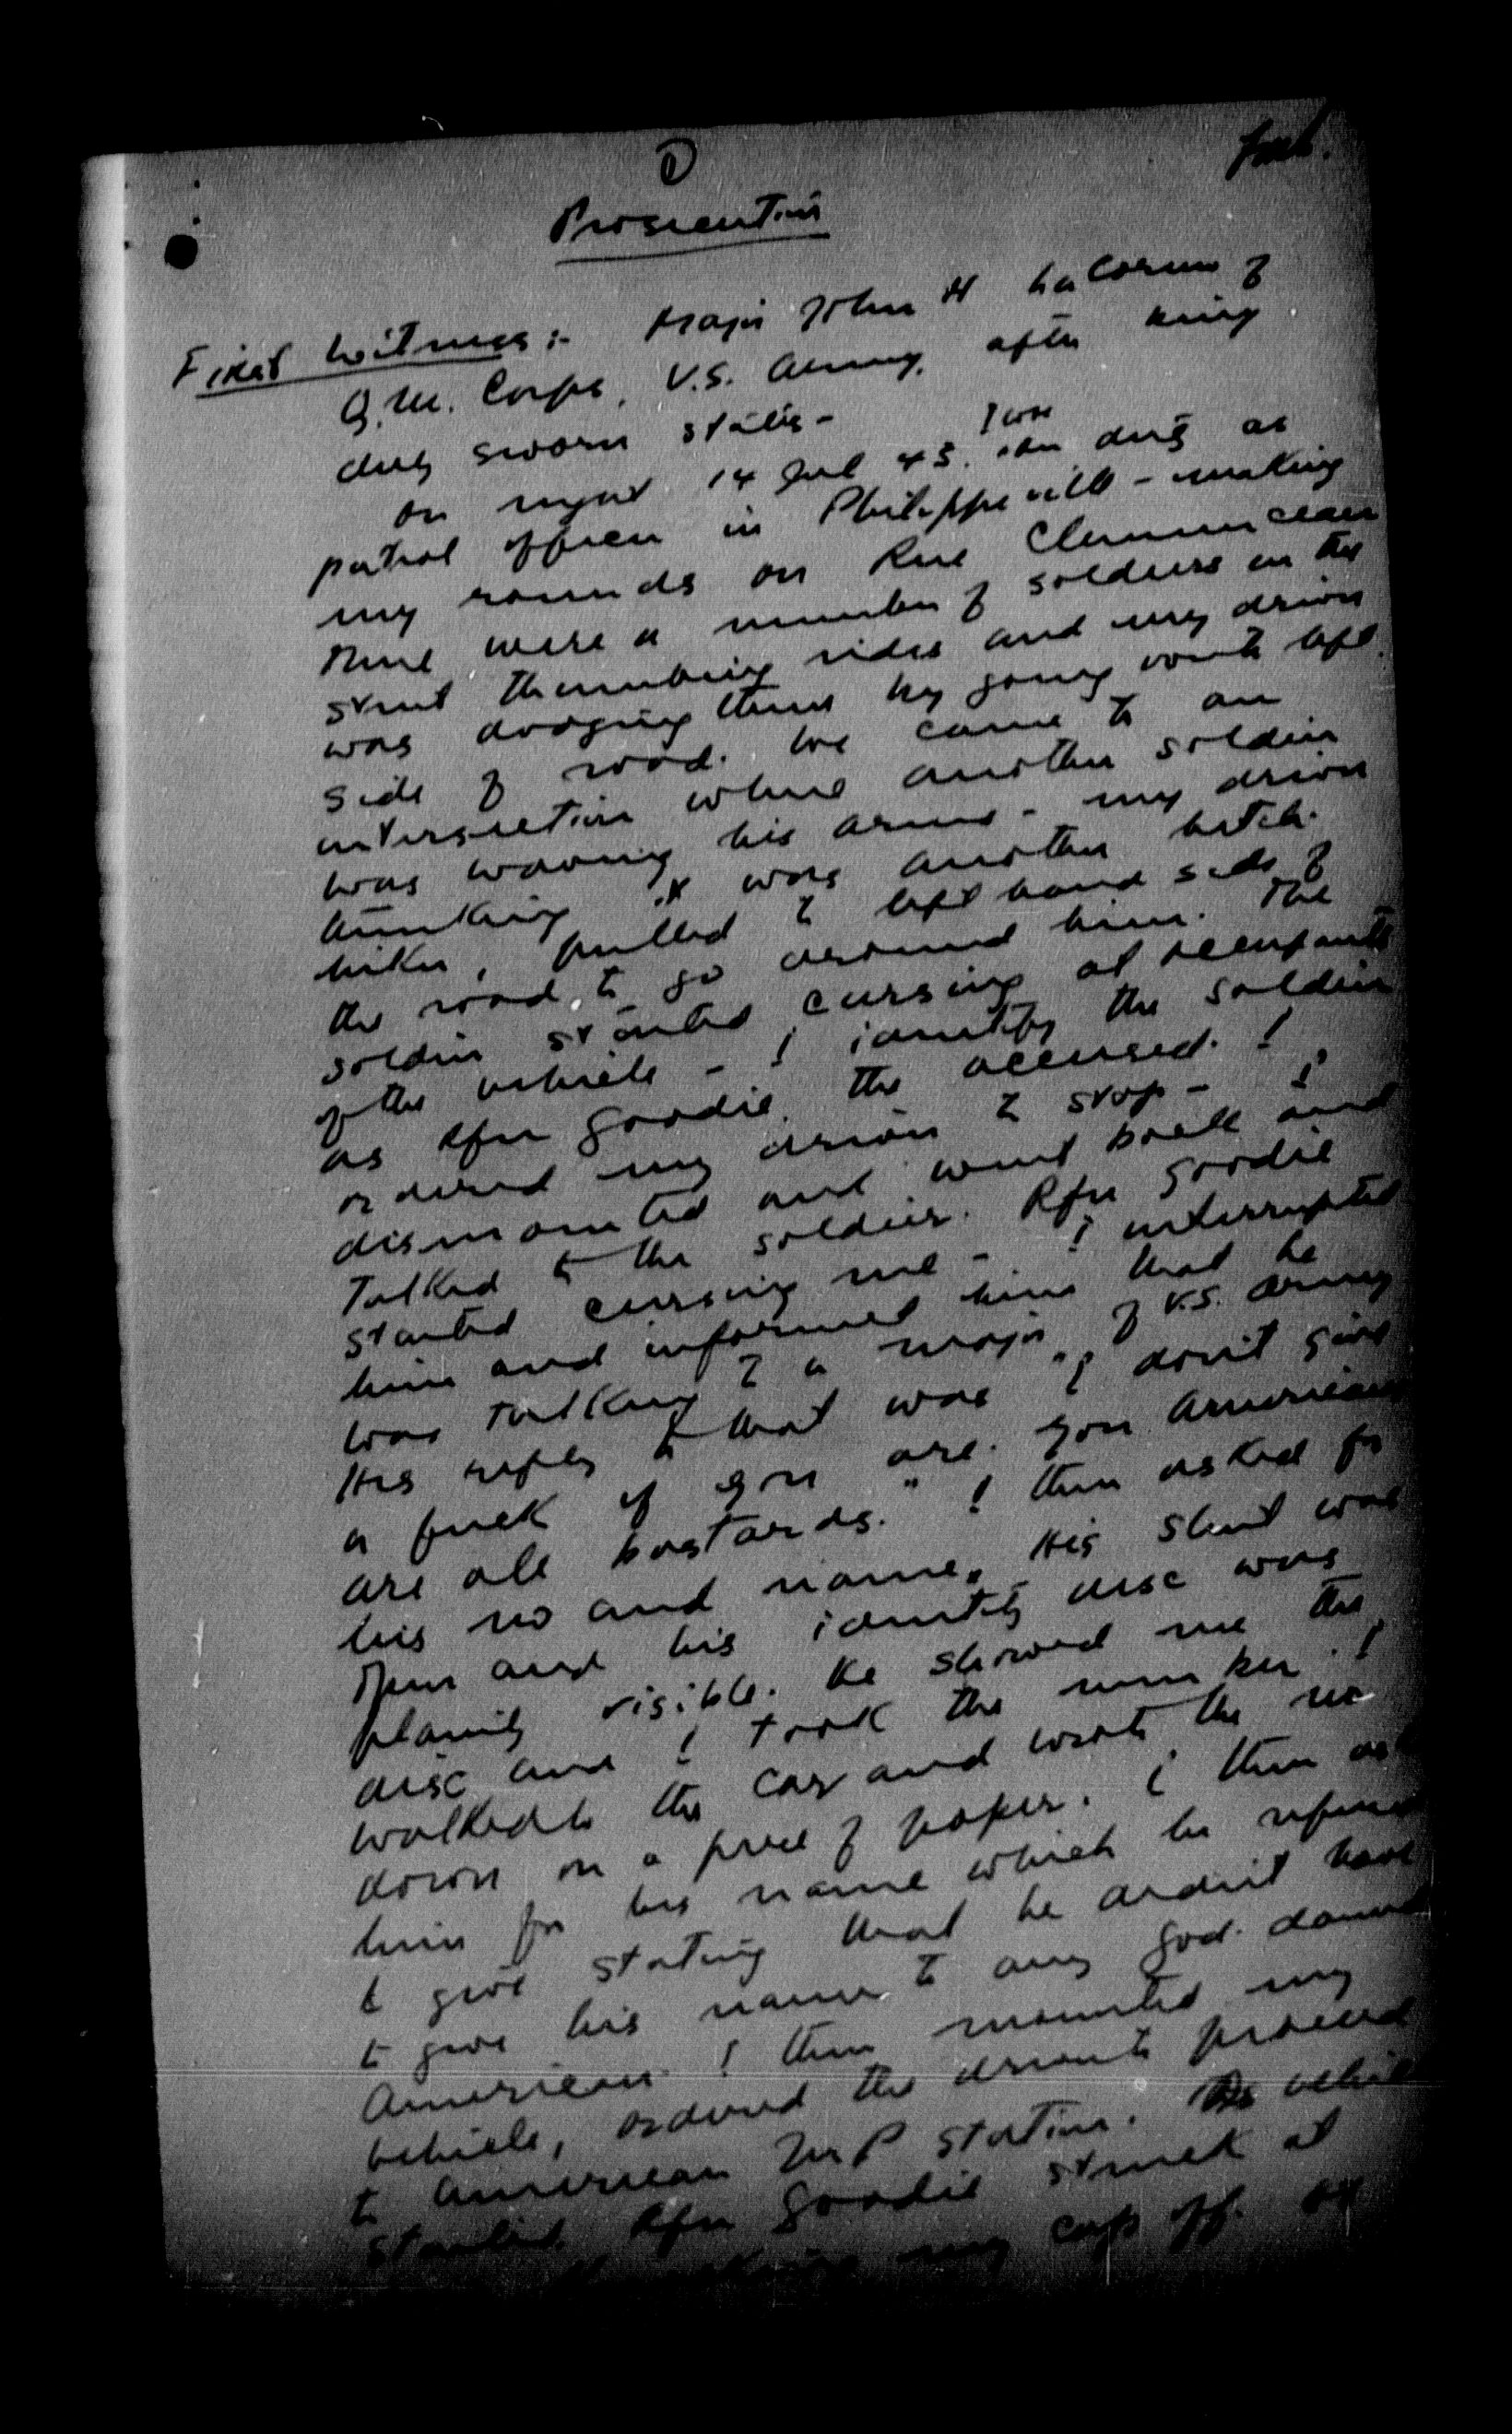 ①
Prosecution
First Witness :- Major John H
Q.M. Corps, U.S. Army, after being
duly sworn states -
I was
on night 14 Jul 43. on duty as
patrol officer in Philippeville - making
my rounds on Rue Clemenceau
There were a number of soldiers in the
street thumbing rides and my driver
was dodging them by going over to left
side of road. We came to an
intersection where another soldier
was waving his arms - my driver
thinking it was another hitch-
hiker, pulled to left hand side of
the road to go around him. The
soldier started cursing at occupants
of the vehicle - I identify the soldier
as Rfn Goodie, the accused. I
ordered my driver to stop - I
dismounted and went back and
talked to the soldier. Rfn Goodie
started cursing me - I interrupted
him and informed him that he
was talking to a major of U.S. Army
His reply to that was "I don't give
a fuck if you are. You Americans
are all bastards." I then asked for
his no and name. His shirt was
open and his identity disc was
plainly visible. He showed me the
disc and I took the number. I
walked to the car and wrote the no
down on a piece of paper. I then
him for his name which he refused
to give stating that he didn't have
to give his name to any god. damned
American. I then mounted my
vehicle, ordered the driver to proceed
to American M P station. The vehicle
started Rfn Goodie struck at
my cap off.